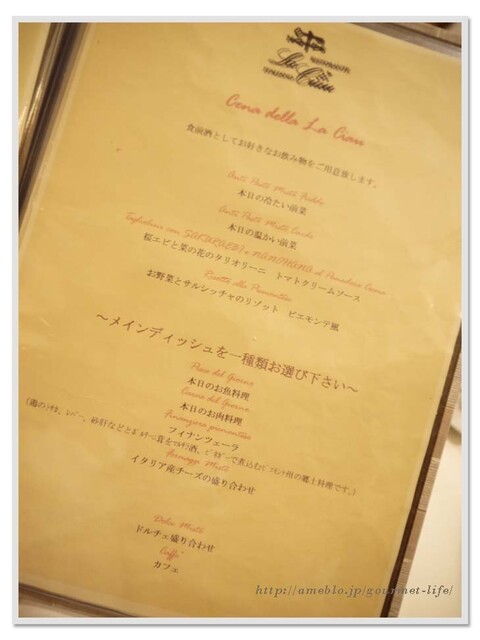 Cena della La Ciau
食前酒としてお好きなお飲み物をご用意致します。
Anti Pasti Misti Freddo
本日の冷たい前菜
Anti Pasti Misti Caldo
本日の温かい前菜
Tagliolini con SAKURAEBI e NANOHANA al Pomodoro Crema
桜エビと菜の花のタリオリーニ トマトクリームソース
Risotto alla Piemontese
お野菜とサルシッチャのリゾット ピエモンテ風
～メインディッシュを一種類お選び下さい～
Pesce del Giorno
本日のお魚料理
Carne del Giorno
本日のお肉料理
Finanziera piemontese
フィナンツェーラ
Formaggi Misti
イタリア産チーズの盛り合わせ
Dolce Misti
ドルチェ盛り合わせ
Caffe'
カフェ
http://ameblo.jp/gourmet-life/